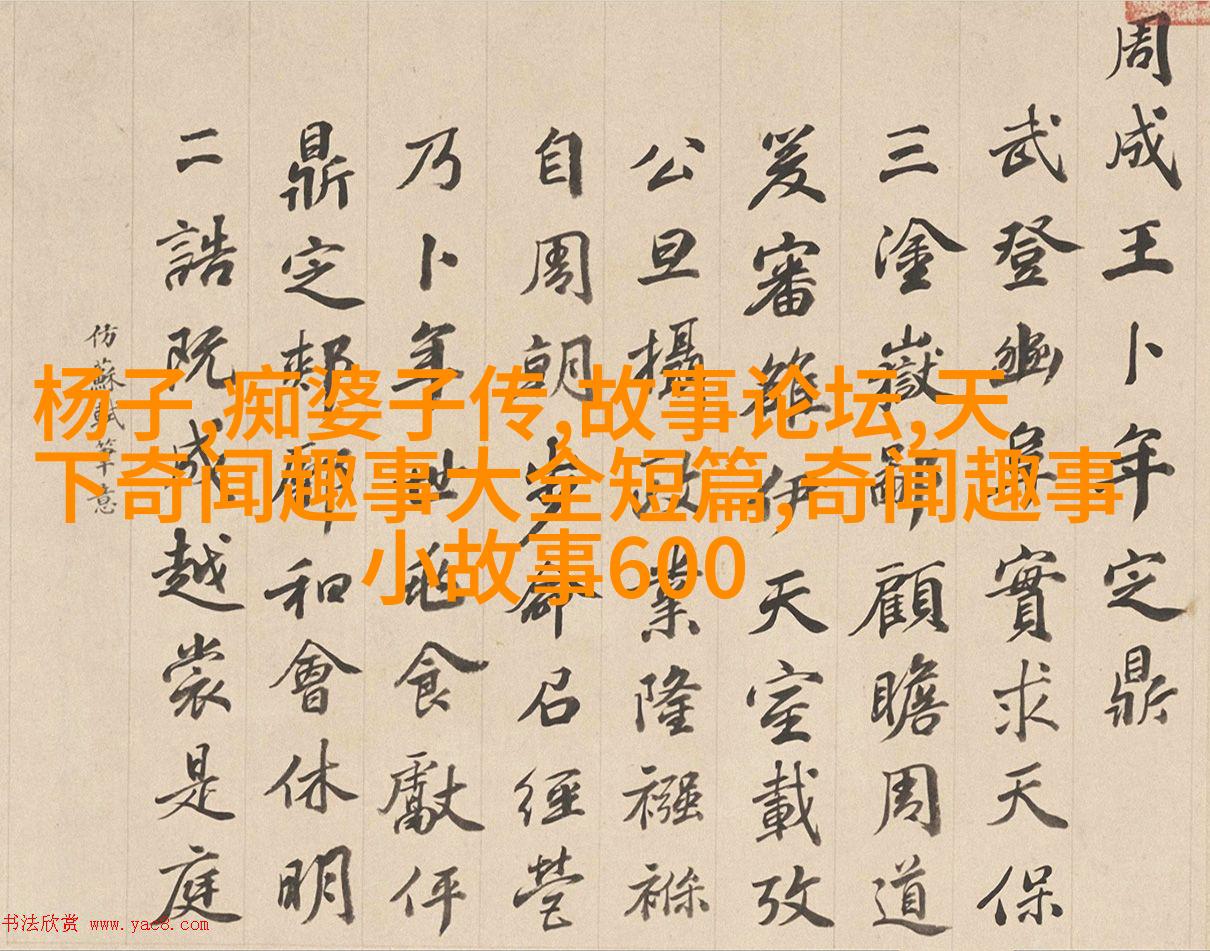 周成王卜年定鼎
武登豳阜實求天保
三塗嶽鄙顧瞻周道
爰審雒伊天室載攷
公旦攝政業隆襁褓
自周朝步命召經營
乃卜年世食獻伻
鼎定郟鄏和會休明
二誥既成越裳是庭
仿蘇軾筆意
杨子,痴婆子传,故事论坛,天
下奇闻趣事大全短篇,奇闻趣事
小故事600
书法欣赏 www.yac8.com